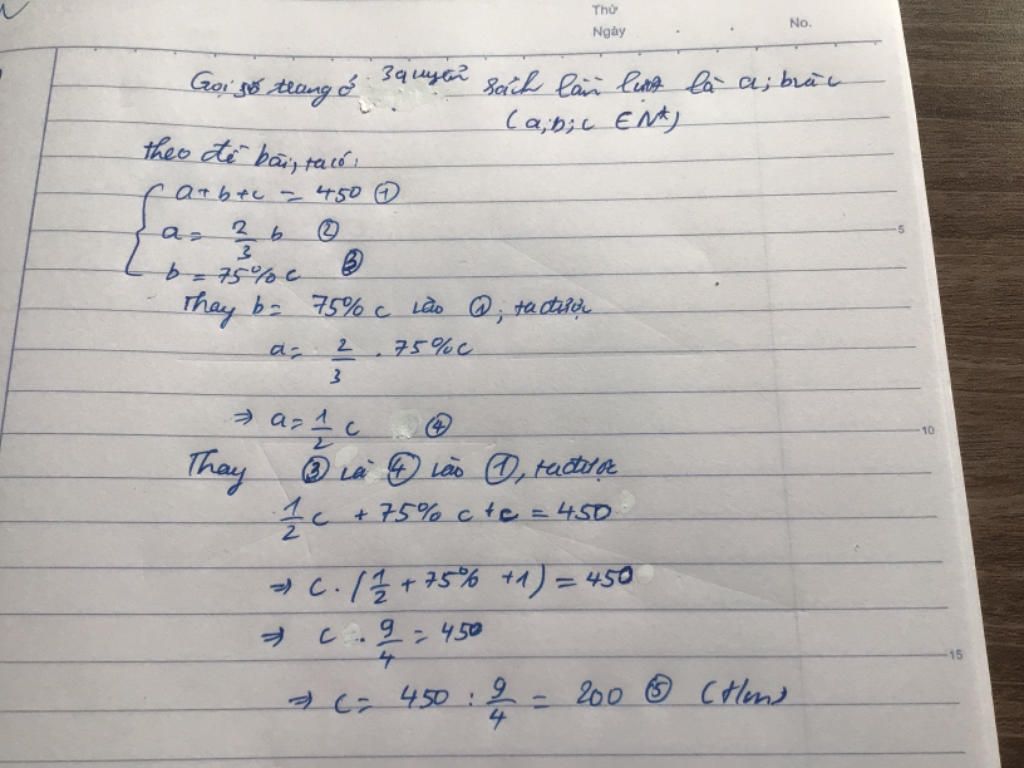 Thứ
Ngày
No.
Gọi số trang ở 3 quyển sách lần lượt là a; b và c
(a; b; c ∈ N*)
theo đề bài, ta có:
a + b + c = 450 ①
a = 2/3 b ②
b = 75% c ③
Thay b = 75% c vào ②; ta được
a = 2/3 . 75% c
⇒ a = 1/2 c ④
Thay ③ và ④ vào ①, ta được
1/2 c + 75% c + c = 450
⇒ c . (1/2 + 75% + 1) = 450
⇒ c . 9/4 = 450
⇒ c = 450 : 9/4 = 200 ⑤ (t/m)
5
10
15